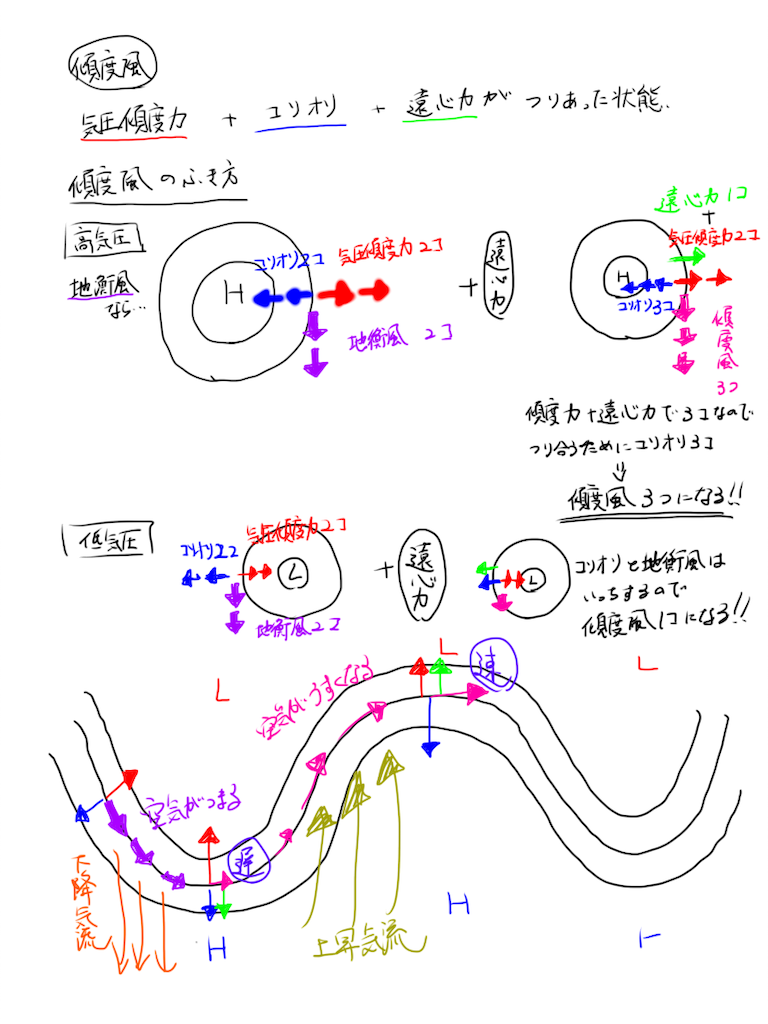 傾度風
気圧傾度力 + コリオリ + 遠心力が つりあった状態.
傾度風のふき方
高気圧
地衡風
なら…
H
コリオリ2コ
気圧傾度力2コ
地衡風 2コ
+
遠心力
遠心力1コ
+
気圧傾度力2コ
H
コリオリ3コ
傾度風3コ
傾度力+遠心力で3コなので
つり合うためにコリオリ3コ
⇓
傾度風3つになる!!
低気圧
コリオリ2コ
気圧傾度力2コ
L
地衡風2コ
+
遠心力
L
コリオリと地衡風は
いっちするので
傾度風1コになる!!
L
L
L
速
空気がうすくなる
空気がつまる
遅
下降気流
上昇気流
H
H